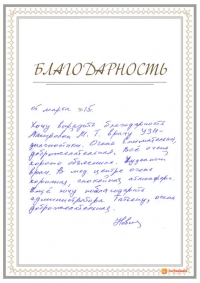 БЛАГОДАРНОСТЬ
Хочу выразить благодарность
М. Т. врачу УЗИ-
диагностики. Очень внимательная,
доброжелательная. Всё очень
хорошо объяснила.
врач. В мед центре очень
хорошая, спокойная атмосфера.
Ещё хочу поблагодарить
администратора Татьяну, очень
доброжелательная.